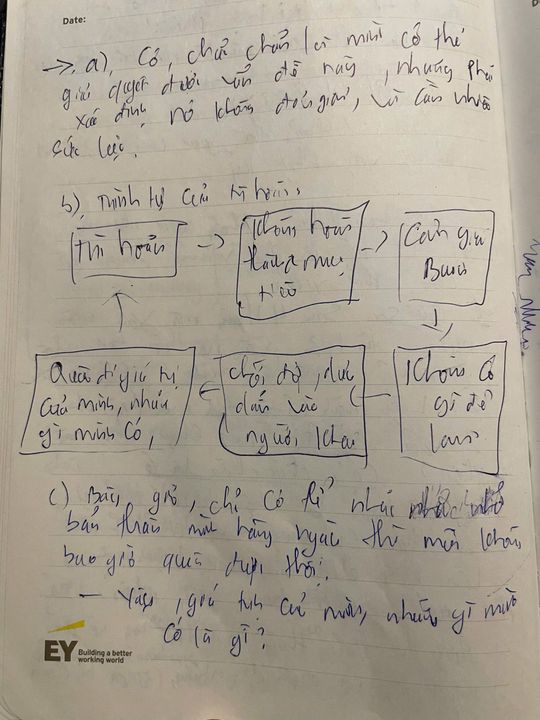 Date:
a), Có, chắc chắn là mình có thể
giải quyết được vấn đề này, nhưng phải
xác định nó không đơn giản, và cần nhiều
sức lực.
b), Trình tự của trì hoãn,
trì hoãn
không hoàn
thành mục
tiêu
Cảm giác
Buồn
không có
gì để
làm
chới, dựa
dẫm vào
người khác
Quên đi giá trị
của mình, những
gì mình có,
c) Bây giờ, chỉ có thể nhắc nhở
bản thân mình hàng ngày thì mới không
bao giờ quên được thôi.
- Vậy, giá trị của mình, những gì mình
có là gì?
EY
Building a better
working world